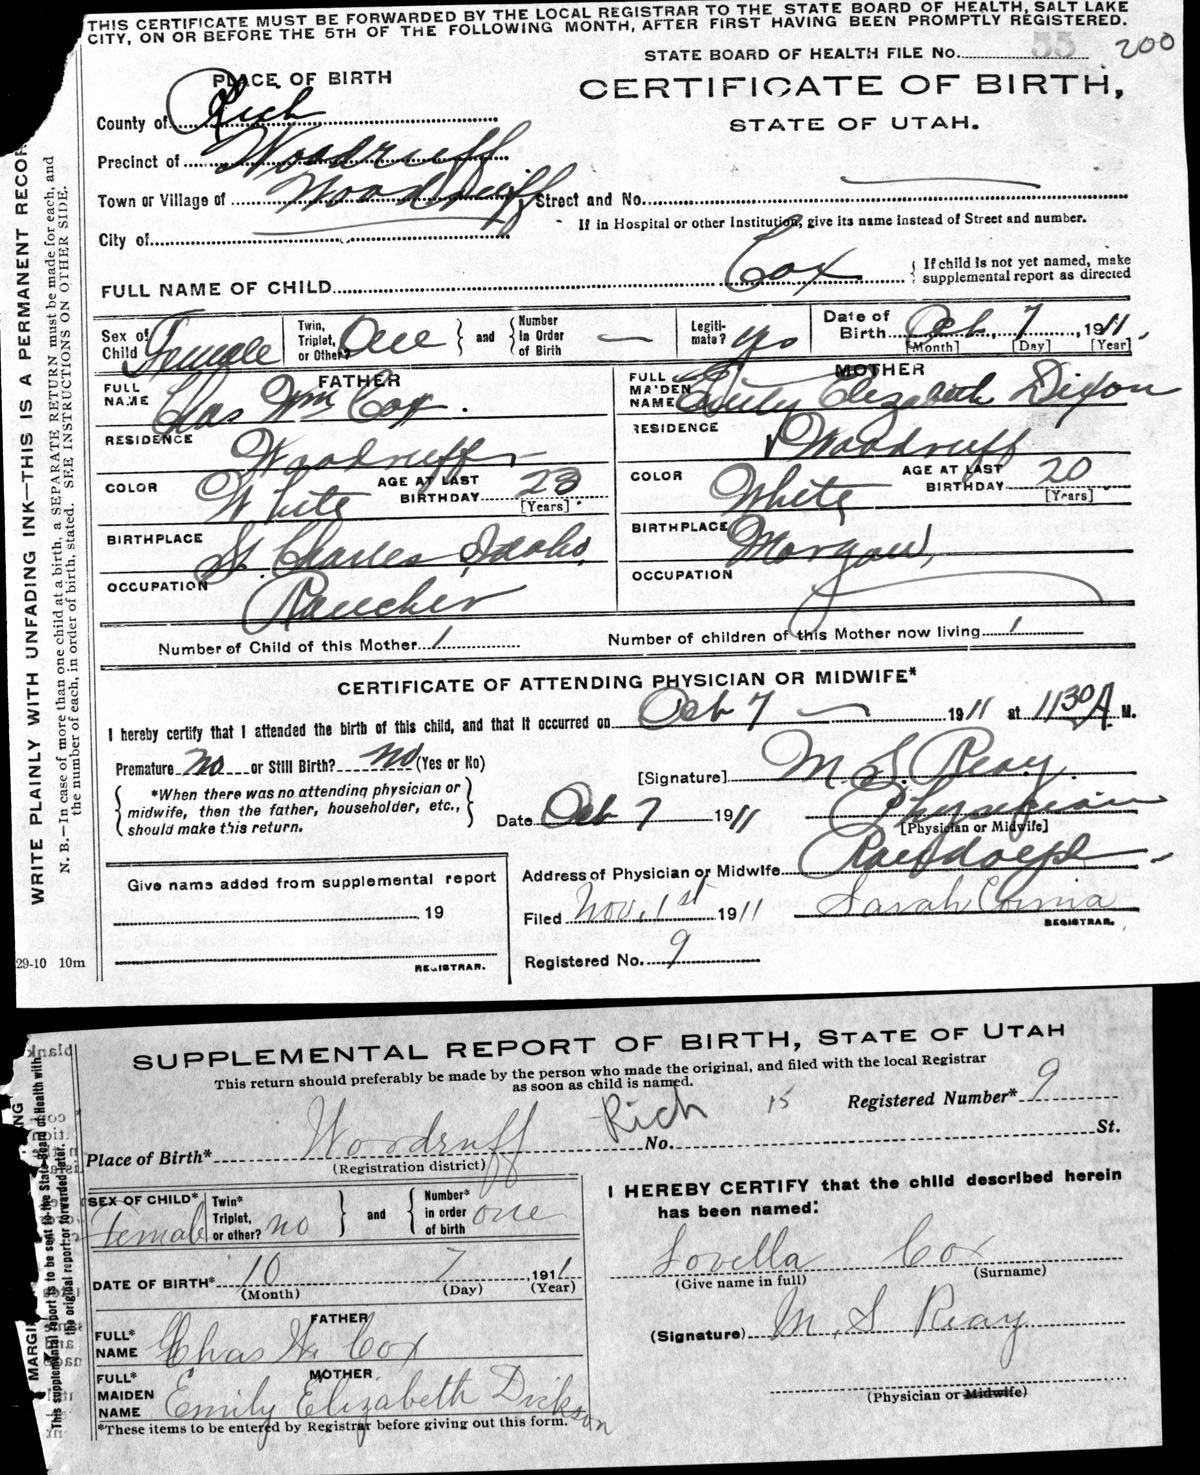 THIS CERTIFICATE MUST BE FORWARDED BY THE LOCAL REGISTRAR TO THE STATE BOARD OF HEALTH, SALT LAKE
CITY, ON OR BEFORE THE 5TH OF THE FOLLOWING MONTH, AFTER FIRST HAVING BEEN PROMPTLY REGISTERED.
STATE BOARD OF HEALTH FILE No. 55 200
PLACE OF BIRTH
CERTIFICATE OF BIRTH,
STATE OF UTAH.
County of Rich
Precinct of Woodruff
Town or Village of Woodruff Street and No.
If in Hospital or other Institution, give its name instead of Street and number.
City of
FULL NAME OF CHILD Cox { If child is not yet named, make
supplemental report as directed
Sex of Child Female Twin, Triplet, or Other? One } and { Number in Order of Birth — Legiti-mate? yes Date of Birth Oct 7, 1911,
[Month] [Day] [Year]
FATHER
FULL NAME Chas Wm Cox.
RESIDENCE Woodruff
COLOR White AGE AT LAST BIRTHDAY 23 [Years]
BIRTHPLACE St. Charles, Idaho,
OCCUPATION Rancher
MOTHER
FULL MAIDEN NAME Emily Elizabeth Dixon
RESIDENCE Woodruff
COLOR White AGE AT LAST BIRTHDAY 20 [Years]
BIRTHPLACE Morgan,
OCCUPATION
Number of Child of this Mother 1 Number of children of this Mother now living 1
CERTIFICATE OF ATTENDING PHYSICIAN OR MIDWIFE*
I hereby certify that I attended the birth of this child, and that it occurred on Oct 7 — 1911 at 1130 A M.
Premature no or Still Birth? no (Yes or No)
[Signature] M. S. Reay.
{ *When there was no attending physician or
midwife, then the father, householder, etc.,
should make this return. }
Date Oct 7 1911 Physician
[Physician or Midwife]
Address of Physician or Midwife Randolph
Filed Nov. 1st 1911 Sarah Cornia
REGISTRAR.
Registered No. 9
Give name added from supplemental report
, 19
REGISTRAR.
29-10 10m
WRITE PLAINLY WITH UNFADING INK—THIS IS A PERMANENT RECOR
N. B.—In case of more than one child at a birth, a SEPARATE RETURN must be made for each, and
the number of each, in order of birth, stated. SEE INSTRUCTIONS ON OTHER SIDE.
SUPPLEMENTAL REPORT OF BIRTH, STATE OF UTAH
This return should preferably be made by the person who made the original, and filed with the local Registrar
as soon as child is named.
Rich 15 Registered Number* 9
Place of Birth* Woodruff No. St.
(Registration district)
SEX OF CHILD* Female Twin* Triplet, or other? no } and { Number* in order of birth one
DATE OF BIRTH* 10 7, 1911
(Month) (Day) (Year)
FATHER
FULL* NAME Chas W. Cox
MOTHER
FULL* MAIDEN NAME Emily Elizabeth Dickson
*These items to be entered by Registrar before giving out this form.
I HEREBY CERTIFY that the child described herein
has been named:
Lovella Cox
(Give name in full) (Surname)
(Signature) M. S Reay
(Physician or Midwife)
MARGI
This supplemental report to be sent to the State Board of Health with
the original report or forwarded later.